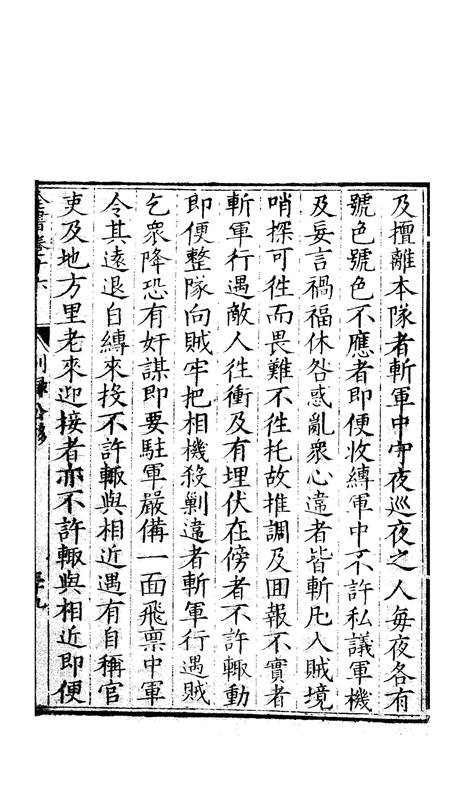 及擅離本隊者斬軍中守夜巡夜之人每夜各有
號色號色不應者即便收縛軍中不許私議軍機
及妄言禍福休咎惑亂衆心違者皆斬凡入賊境
哨探可徃而畏難不徃托故推調及回報不實者
斬軍行遇敵人徃衝及有埋伏在傍者不許輙動
即便整隊向賊牢把相機殺剿違者斬軍行遇賊
乞衆降恐有奸謀即要駐軍嚴備一面飛禀中軍
令其遠退自縛來投不許輙與相近遇有自稱官
吏及地方里老來迎接者亦不許輙與相近即便
全書卷十六